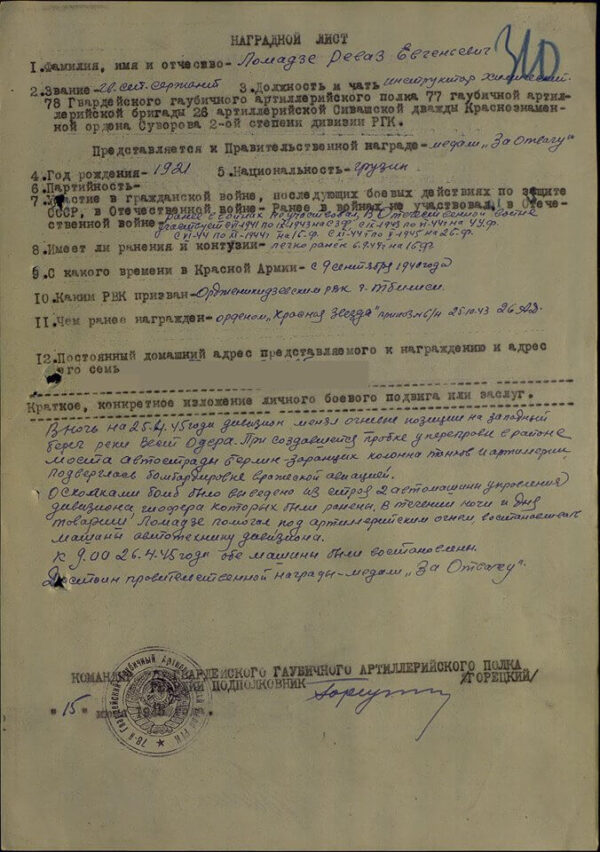 310
НАГРАДНОЙ ЛИСТ
1.Фамилия, имя и отчество- Ломадзе Реваз Евгеньевич
2.Звание- гв. сержант 3.Должность и часть инструктор химический
78 Гвардейского гаубичного артиллерийского полка 77 гаубичной артил-
лерийской бригады 26 артиллерийской Сивашской дважды Краснознамен-
ной ордена Суворова 2-ой степени дивизии РГК.
Представляется к Правительственной награде- медали „За Отвагу"
4.Год рождения- 1921 5.Национальность- грузин
6.Партийность-
7.Участие в гражданской войне, последующих боевых действиях по защите
СССР, в Отечественной войне- Ранее в войнах не участвовал, в Отече-
ственной войне
Ранее в войнах не участвовал, В Отечественной войне
участвует с
8.Имеет ли ранения и контузии- легко ранен
9.С какого времени в Красной Армии- с 9 сентября 1940 года
10.Каким РВК призван- Орджоникидзевским РВК г. Тбилиси.
11.Чем ранее награжден- орденом „Красная Звезда" приказ 25.10.43 26АД.
12.Постоянный домашний адрес представляемого к награждению и адрес
его семь
Краткое, конкретное изложение личного боевого подвига или заслуг.
В ночь на 25.4.45 года дивизион менял огневые позиции на западный
берег реки Вест Одера. При создавшейся пробке у переправы в районе
моста автострады Берлин- колонна танков и артиллерии
подверглась бомбардировке вражеской авиацией.
Осколками бомб было выведено из строя 2 автомашины управления
дивизиона, шофера которых были ранены. В течении ночи и дня
товарищ Ломадзе помогал под артиллерийским огнем, востонавливать
машины автотехнику дивизиона.
К 9.00 26.4.45 года обе машины были востоновлены.
Достоин провительственной награды- медали „За Отвагу".
КОМАНДИР ГВАРДЕЙСКОГО ГАУБИЧНОГО АРТИЛЛЕРИЙСКОГО ПОЛКА
ПОДПОЛКОВНИК /ГОРЕЦКИЙ/
"15